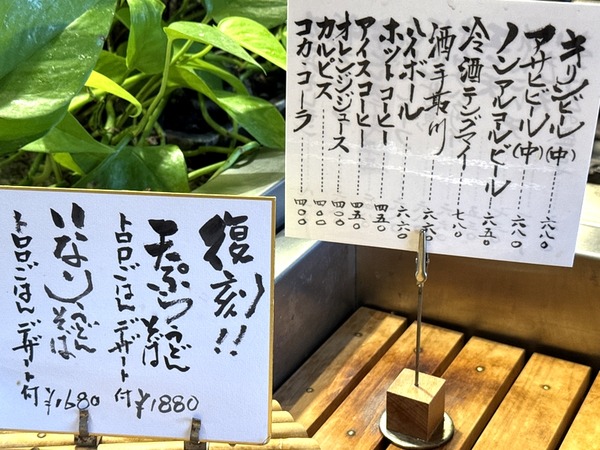 キリンビール(中)……六八〇
アサヒビール(中)……六八〇
ノンアルコルビール……六五〇
冷酒テンザン……七八〇
酒 千寿川……六六〇
ハイボール……六六〇
ホットコーヒー……四五〇
アイスコーヒー……四五〇
オレンジジュース……四〇〇
カルピス……四〇〇
コカ・コーラ……四〇〇
復刻!!
天ぷらうどんそば
トロロごはん デザート付 ¥1880
いなりうどんそば
トロロごはん デザート付 ¥1680